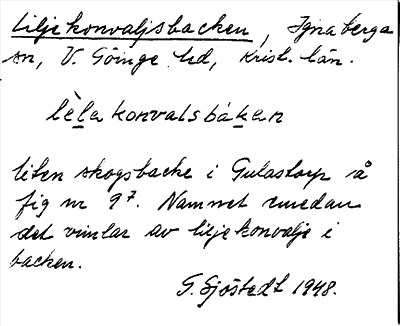 Liljekonvaljsbacken, Ignaberga
sn, V. Göinge hd, Krist. län.
lèlakonvalsbákan
liten skogsbacke i Gulastorp å
fig nr 9⁷. Namnet emedan
det vimlar av liljekonvalje i
backen.
G. Sjöstedt 1948.